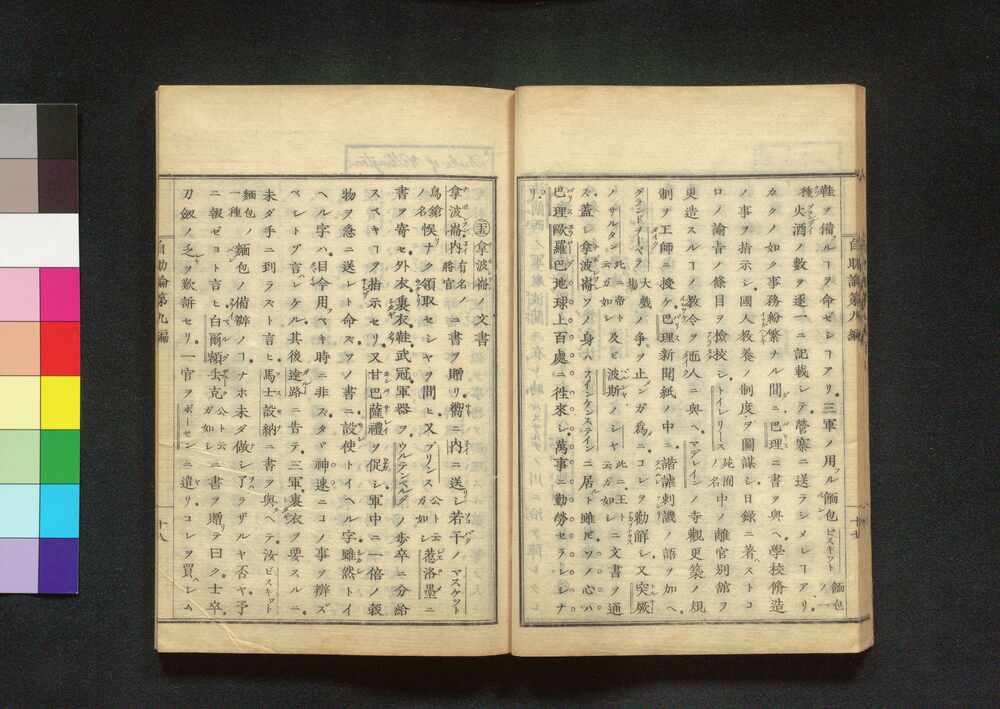 自助論第九編
十七
鞋ヲ備ルヿヲ命ゼシヿアリ。三軍ノ用フル麺包ビスキット麺包ノ一
種火酒ノ數ヲ逐一ニ記載シテ營寨ニ送ラシメシヿアリ
カクノ如ク事務紛繁ナル間ニ巴理ニ書ヲ與ヘ學校脩造
ノ事ヲ指示シ國人教養ノ制度ヲ圖謀シ日録ニ著ストコ
ロノ諭告ノ條目ヲ檢技シトイレリース苑囿中ノ離宮別館ヲノ名
更造スルヿノ教令ヲ他人ニ與ヘマデレインノ寺觀更築ノ規
制ヲ王師ニ授ケ巴理新聞紙ノ中ニ諧謔刺譏ノ語ヲ加ヘ
ノサルタン此ニ帝ト云ガ如シ及ビ波斯ノシャ此ニ王ト云ガ如シニ文書ヲ通
ス蓋シ拿波崙ソノ身ハフインケンステインニ居ルト雖ドモソノ心ハ
巴理歐羅巴地球上百處ニ徃來シ萬事ニ勤勞セラレシナ
リ
拿波崙ノ文書
拿波崙内有名ノ將官ニ書ヲ贈リ嚮ニ内ニ送レ若干ノマスケット
鳥鎗ノ名悞ナク領取セシヤヲ問ヒ又プリンス公ト云ガ如シ惹洛墨ニ
書ヲ寄セ外衣裏衣鞋武冠軍器ヲウルテンベルグノ歩卒ニ分給
スベキヿヲ指示セリ又甘巴薩禮ヲ促シ軍中ニ一倍ノ穀
物ヲ急ニ送レト命ズソノ書ニ設使トイヘル字雖然トイ
ヘル字ハ目今用フベキ時ニ非ズタヾ神速ニコノ事ヲ辨ズ
ベシトゾ言ヒケル其後途路ニ告テ三軍裏衣ヲ要スルニ
未ダ手ニ到ラズト言ヒ馬士設納ニ書ヲ與ヘテ汝ビスキット
麺包ノ一種麺包ノ備辨ノヿナホ未ダ做シ了ラザルヤ否ヤ予
ニ報ゼヨト言ヒ白爾額公ト云ガ如シニ書ヲ贈テ曰ク士卒
刀劒ノ乏ヲ歎訴セリ一官ヲボーセンニ遣リコレヲ買ハシム
自助論第九編
十八